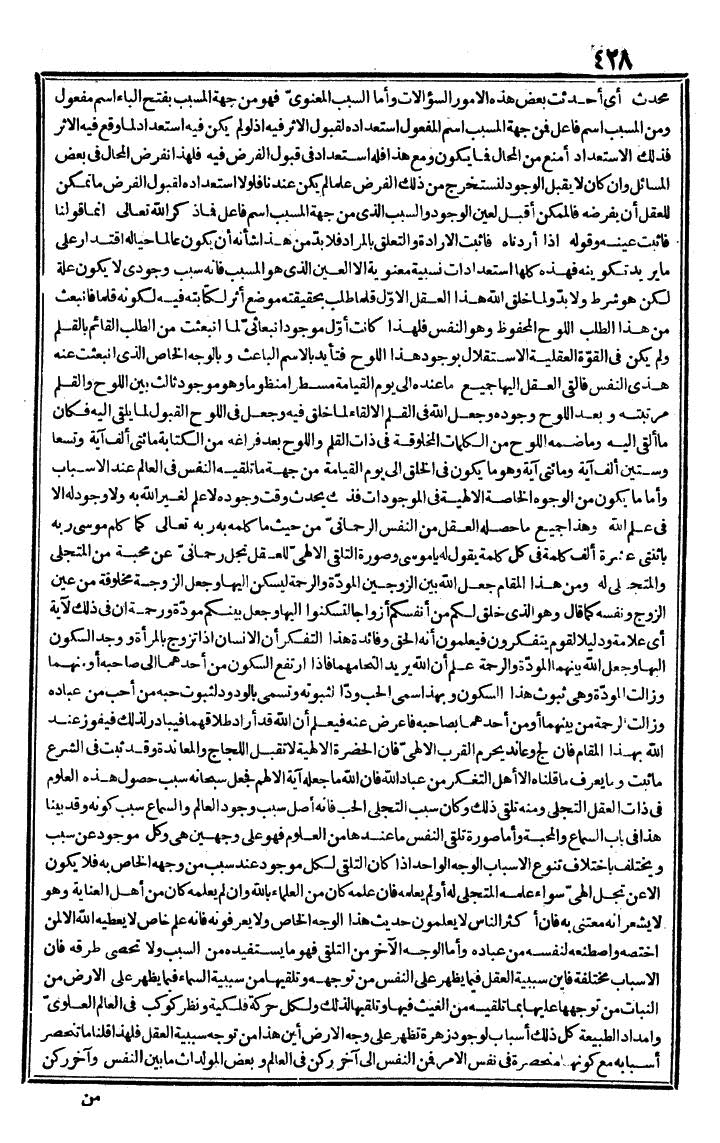 ٤٢٨
محدث أي أحدثت بعض هذه الامور السؤالات وأما السبب المعنوي فهو من جهة المسبب بفتح الباء اسم مفعول
ومن المسبب اسم فاعل فمن جهة المسبب اسم المفعول استعداده لقبول الاثر فيه اذ لو لم يكن فيه استعداد لما وقع فيه الاثر
فذلك الاستعداد أمنع من المحال فما يكون ومع هذا فله استعداد في قبول الفرض فيه فلهذا نفرض المحال في بعض
المسائل وان كان لا يقبل الوجود لنستخرج من ذلك الفرض علما لم يكن عندنا فلولا استعداده لقبول الفرض ما تمكن
للعقل أن يفرضه فالممكن أقبل لعين الوجود والسبب الذي من جهة المسبب اسم فاعل فما ذكر الله تعالى انما قولنا
فاثبت عينه وقوله اذا أردناه فاثبت الارادة والتعلق بالمراد فلابد من هذا شأنه أن يكون عالما حياله اقتدار على
ما يريد تكوينه فهذه كلها استعدادات نسبية معنوية الا العين الذي هو المسبب فانه سبب وجودي لا يكون علة
لكن هو شرط ولابد ولما خلق الله هذا العقل الاول قلما طلب بحقيقته موضع أثر لكتابته فيه لكونه قلما فانبعث
من هذا الطلب اللوح المحفوظ وهو النفس فلهذا كانت أول موجود انبعاثي لما انبعثت من الطلب القائم بالقلم
ولم يكن في القوة العقلية الاستقلال بوجود هذا اللوح فتأيد بالاسم الباعث وبالوجه الخاص الذي انبعثت عنه
هذى النفس فالقى العقل اليها جميع ما عنده الى يوم القيامة مسطرا منظوما وهو موجود ثالث بين اللوح والقلم
مرتبته وبعد اللوح وجوده وجعل الله في القلم الالقاء لما خلق فيه وجعل في اللوح القبول لما يلقى اليه فكان
ما ألقى اليه وما ضمه اللوح من الكلمات المخلوقة في ذات القلم واللوح بعد فراغه من الكتابة مائتي ألف آية وتسعا
وستين ألف آية ومائتي آية وهو ما يكون في الخلق الى يوم القيامة من جهة ما تلقيه النفس في العالم عند الاسباب
وأما ما يكون من الوجوه الخاصة الالهية في الموجودات فذلك يحدث وقت وجوده لا علم لغير الله به ولا وجود له الا
في علم الله وهذا جميع ما حصله العقل من النفس الرحماني من حيث ما كلمه به ربه تعالى كما كلم موسى ربه
باثنتي عشرة ألف كلمة في كل كلمة يقول له يا موسى وصورة التلقي الالهي للعقل تجل رحماني عن محبة من المتجلي
والمتجلى له ومن هذا المقام جعل الله بين الزوجين المودة والرحمة ليسكن اليها وجعل الزوجة مخلوقة من عين
الزوج ونفسه كما قال وهو الذي خلق لكم من أنفسكم أزواجا لتسكنوا اليها وجعل بينكم مودة ورحمة ان في ذلك لآية
أي علامة ودليلا لقوم يتفكرون فيعلمون أنه الحق وفائدة هذا التفكر أن الانسان اذا تزوج بالمرأة ووجد السكون
اليها وجعل الله بينهما المودة والرحمة علم أن الله يريد التحامهما فاذا ارتفع السكون من أحدهما الى صاحبه أو منهما
وزالت المودة وهي ثبوت هذا السكون وبهذا سمى الحب ودا لثبوته وتسمى بالودود لثبوت حبه من أحب من عباده
وزالت الرحمة من بينهما أو من أحدهما بصاحبه فاعرض عنه فيعلم أن الله قد أراد طلاقهما فيبادر لذلك فيفوز عند
الله بهذا المقام فان لج وعاند يحرم القرب الالهي فان الحضرة الالهية لا تقبل اللجاج والمعاندة وقد ثبت في الشرع
ما ثبت وما يعرف ما قلناه الا أهل التفكر من عباد الله فان الله ما جعله آية الا لهم فجعل سبحانه سبب حصول هذه العلوم
في ذات العقل التجلي ومنه تلقي ذلك وكان سبب التجلي الحب فانه أصل سبب وجود العالم والسماع سبب كونه وقد بينا
هذا في باب السماع والمحبة وأما صورة تلقي النفس ما عندها من العلوم فهو على وجهين هي وكل موجود عن سبب
ويختلف باختلاف تنوع الاسباب الوجه الواحد اذا كان التلقي لكل موجود عند سبب من وجهه الخاص به فلا يكون
الا عن تجل الهي سواء علمه المتجلى له أو لم يعلمه فان علمه كان من العلماء بالله وان لم يعلمه كان من أهل العناية وهو
لا يشعر انه معتنى به فان أكثر الناس لا يعلمون حديث هذا الوجه الخاص ولا يعرفونه فانه علم خاص لا يعطيه الله الا لمن
اختصه واصطنعه لنفسه من عباده وأما الوجه الآخر من التلقي فهو ما يستفيده من السبب ولا تحصى طرقه فان
الاسباب مختلفة فاين سببية العقل فيما يظهر على النفس من توجهه وتلقيها من سببية السماء فيما يظهر على الارض من
النبات من توجهها عليها بما تلقيه من الغيث فيها وتلقيها لذلك ولكل حركة فلكية ونظر كوكب في العالم العلوي
وامداد الطبيعة كل ذلك أسباب لوجود زهرة تظهر على وجه الارض أين هذا من توجه سببية العقل فلهذا قلنا ما تنحصر
أسبابه مع كونها منحصرة في نفس الامر فمن النفس الى آخر ركن في العالم وبعض المولدات ما بين النفس وآخر ركن
من